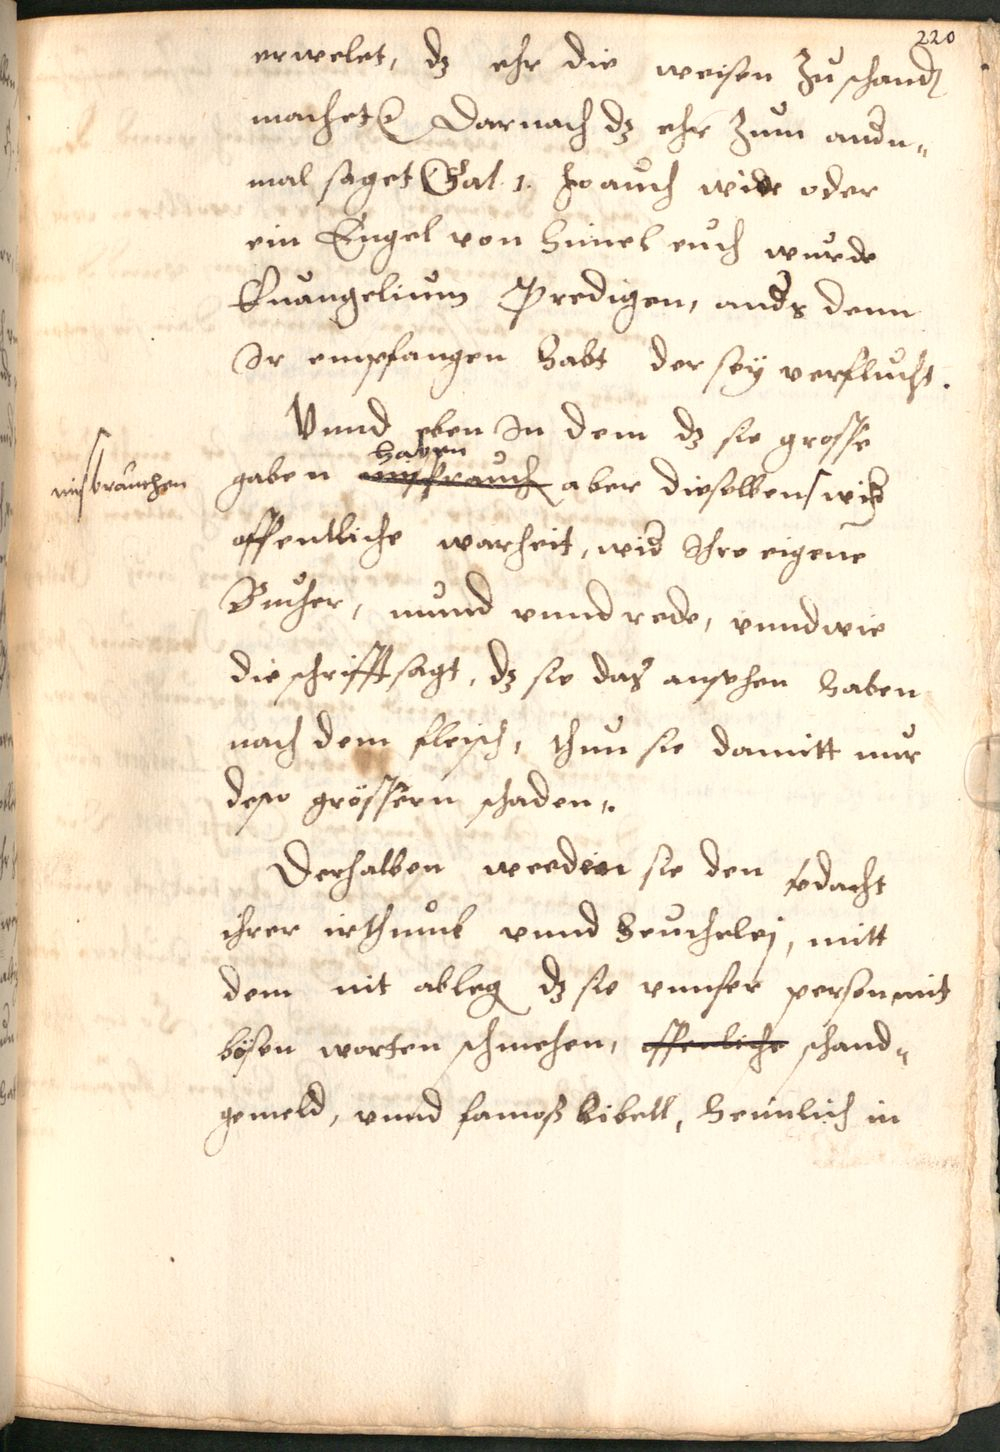 220
erwelet, dz ehr die weisen zu schand
machet Darnach dz ehr zum andn-
mal saget Gal. 1. so auch wir oder
ein Engel von himel euch wurde
Euangelium Predigen, anders denn
Ir empfangen habt der sey verflucht.
Vnnd eben In dem dz sie grosse
haben
misbrauchen gaben misbrauch aber dieselben wid
offentliche warheit, wid Ihre eigene
Bucher, mund vnnd rede, vnnd wie
die schrifft sagt, dz sie daß ansehen haben
nach dem fleisch, thun sie damitt nur
desto grössern schaden.
Derhalben werden sie den
ihrer irthumb vnnd heuchelej, mitt
dem nit ableg dz sie vnnser person mit
bösen worten schmehen, offentliche schand-
gemeld, vnnd famoß libell, heimlich in